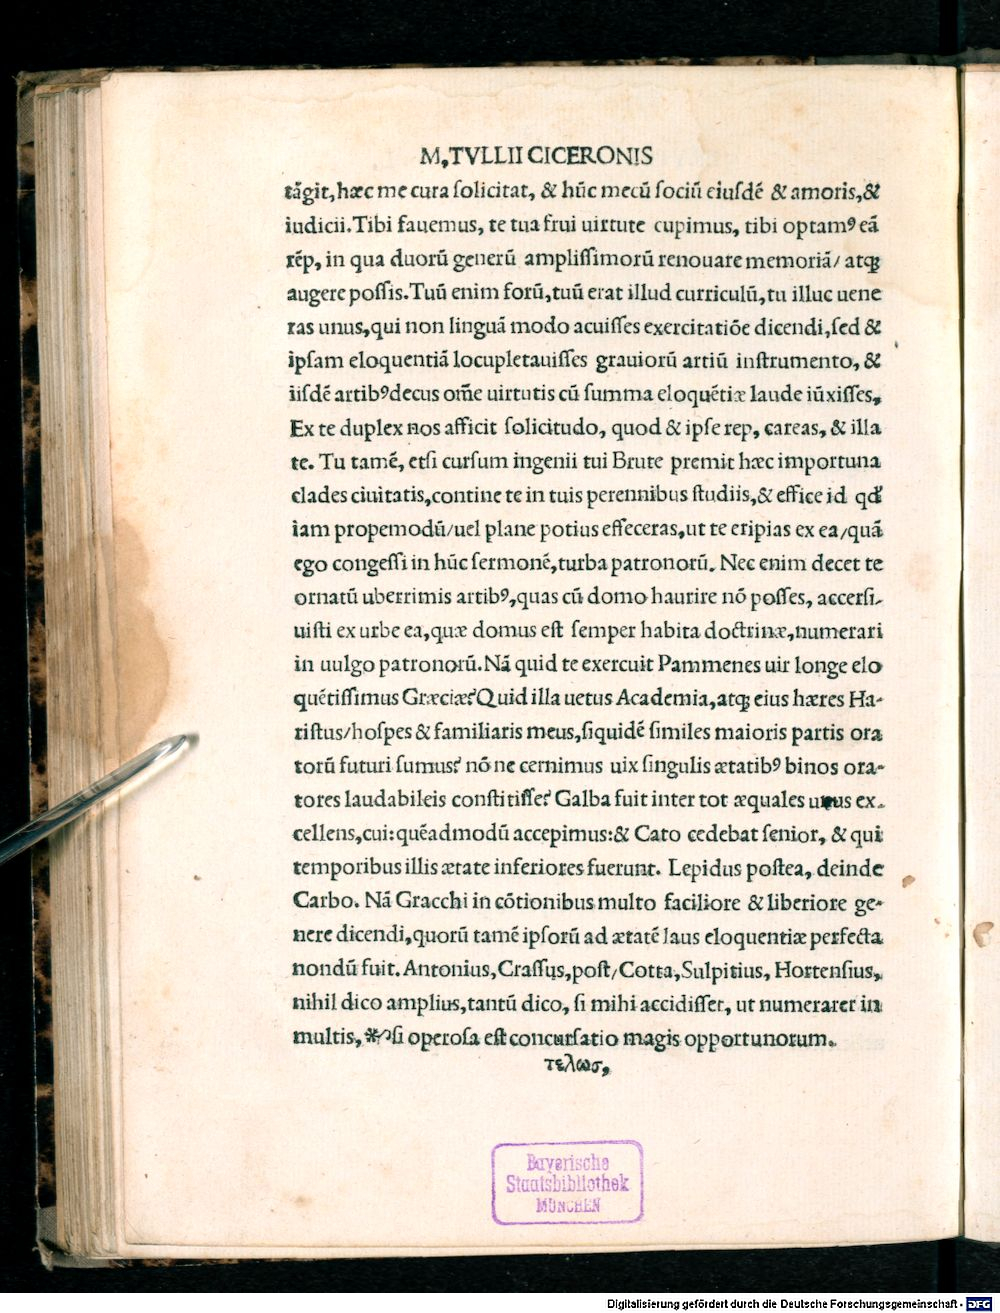 M,TVLLII CICERONIS
tãgit,hæc me cura ſolicitat, & hũc mecũ ſociũ eiuſdẽ & amoris,&
iudicii.Tibi fauemus, te tua frui uirtute cupimus, tibi optamꝰ eã
rẽp, in qua duorũ generũ ampliſſimorũ renouare memoriã/ atqꝫ
augere poſſis.Tuũ enim forũ,tuũ erat illud curriculũ,tu illuc uene
ras unus,qui non linguã modo acuiſſes exercitatiõe dicendi,ſed &
ipſam eloquentiã locupletauiſſes grauiorũ artiũ inſtrumento, &
iiſdẽ artibꝰdecus om̃e uirtutis cũ ſumma eloquẽtiæ laude iũxiſſes,
Ex te duplex nos afficit ſolicitudo, quod & ipſe rep, careas, & illa
te. Tu tamẽ, etſi curſum ingenii tui Brute premit hæc importuna
clades ciuitatis,contine te in tuis perennibus ſtudiis,& effice id qđ
iam propemodũ/uel plane potius effeceras,ut te eripias ex ea/quã
ego congeſſi in hũc ſermonẽ,turba patronorũ. Nec enim decet te
ornatũ uberrimis artibꝰ,quas cũ domo haurire nõ poſſes, accerſi-
uiſti ex urbe ea,quæ domus eſt ſemper habita doctrinæ,numerari
in uulgo patronorũ.Nã quid te exercuit Pammenes uir longe elo
quẽtiſſimus Græciæ?Quid illa uetus Academia,atqꝫ eius hæres Ha-
riſtus/hoſpes & familiaris meus,ſiquidẽ ſimiles maioris partis ora
torũ futuri ſumus? nõ ne cernimus uix ſingulis ætatibꝰ binos ora-
tores laudabileis conſtitiſſe? Galba fuit inter tot æquales unus ex-
cellens,cui:quẽadmodũ accepimus:& Cato cedebat ſenior, & qui
temporibus illis ætate inferiores fuerunt. Lepidus poſtea, deinde
Carbo. Nã Gracchi in cõtionibus multo faciliore & liberiore ge-
nere dicendi,quorũ tamẽ ipſorũ ad ætatẽ laus eloquentiæ perfecta
nondũ fuit. Antonius,Craſſus,poſt/Cotta,Sulpitius, Hortenſius,
nihil dico amplius,tantũ dico, ſi mihi accidiſſet, ut numerarer in
multis, * ſi operoſa eſt concurſatio magis opportunorum.
τελωσ,
Bayerische
Staatsbibliothek
MÜNCHEN
Digitalisierung gefördert durch die Deutsche Forschungsgemeinschaft - DFG